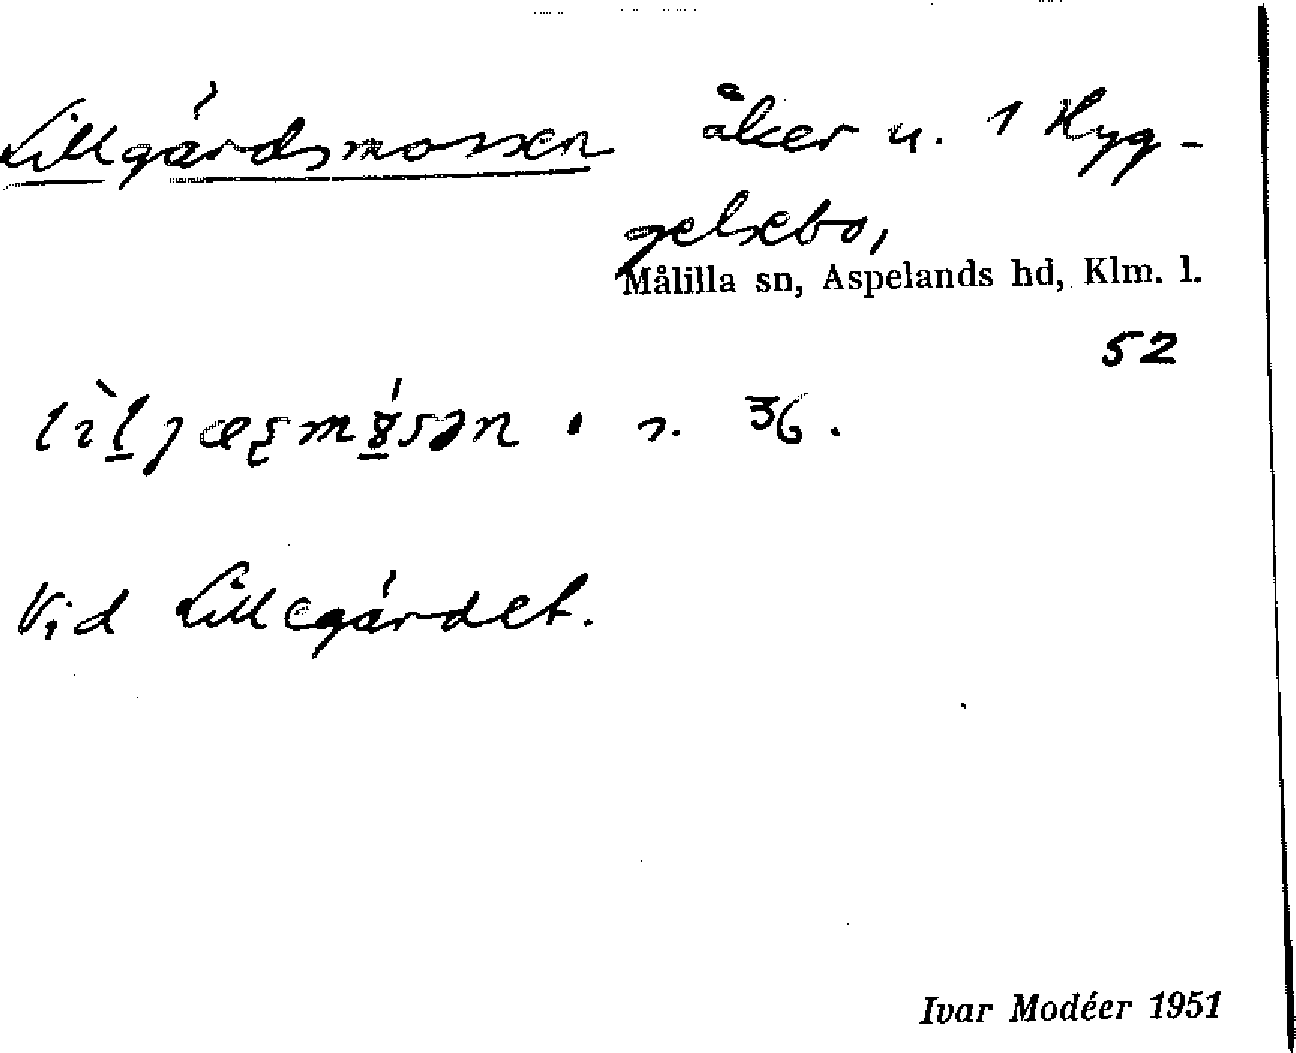 Lillgärdsmossen åker u. 1 Hyg-
gelsebo,
Målilla sn, Aspelands hd, Klm. l.
52
n. 36.
Vid Lillegärdet.
Ivar Modéer 1951